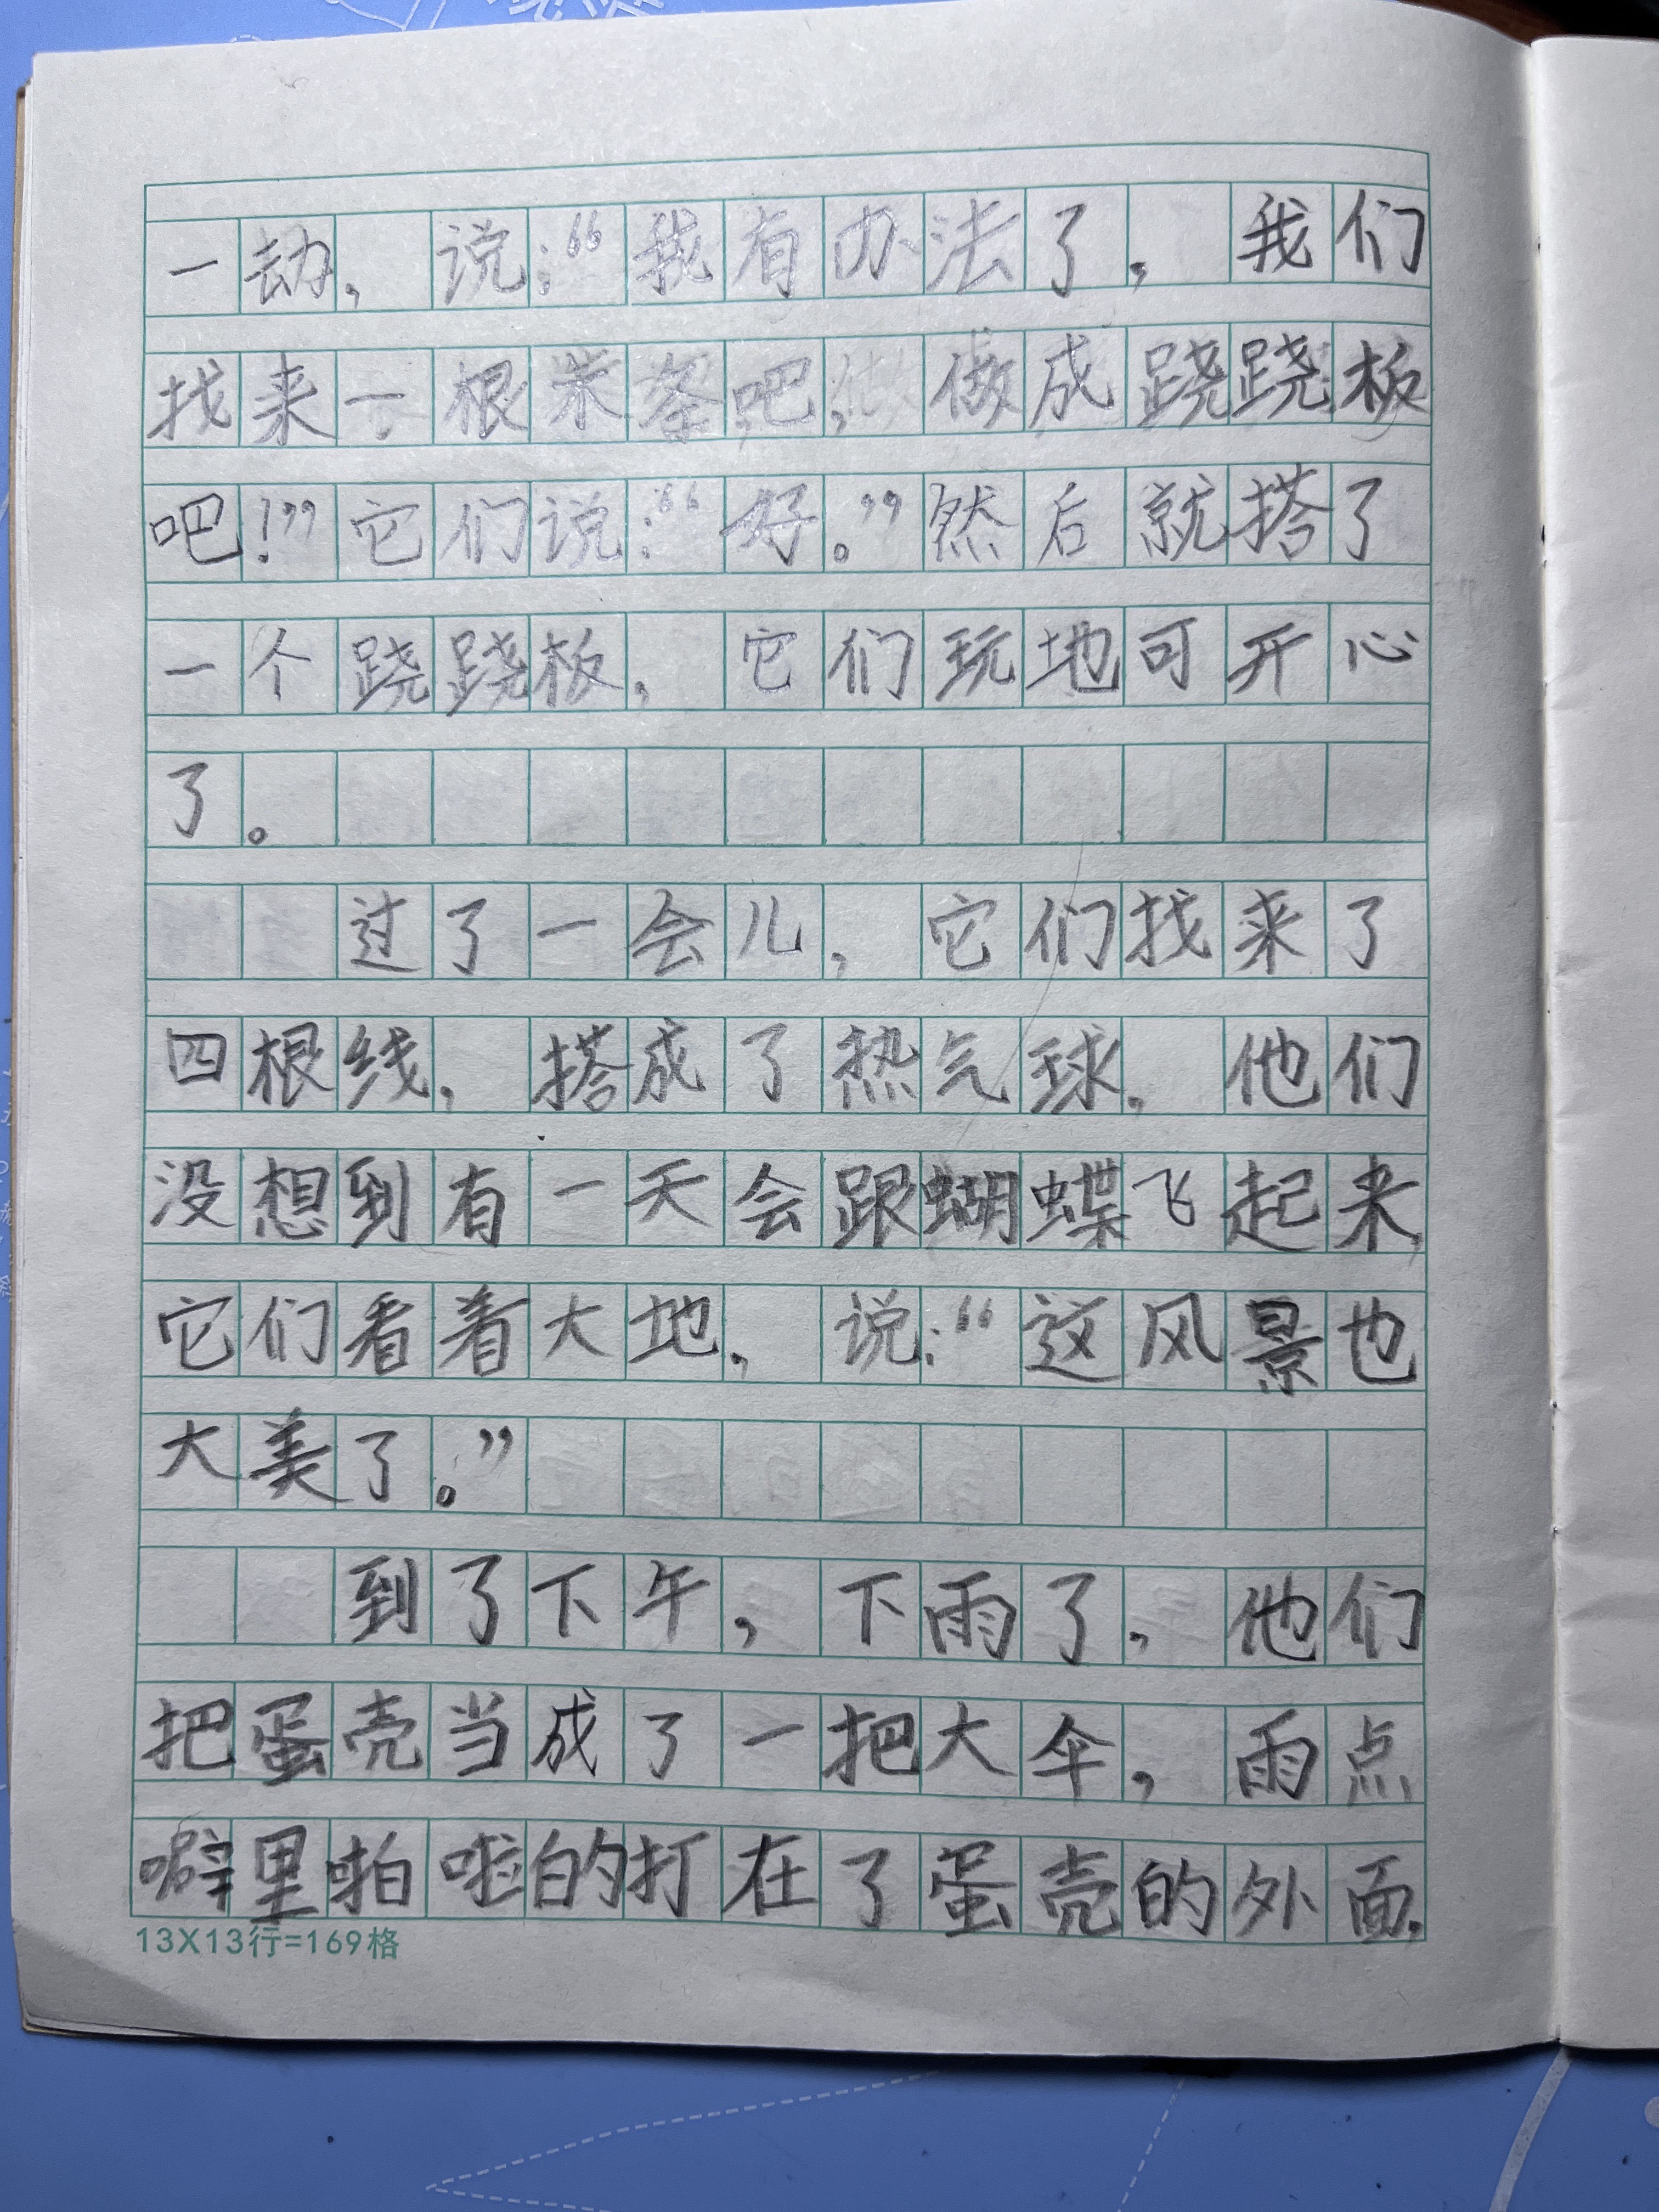 一动，说：“我有办法了，我们
找来一根柴条吧，做成跷跷板
吧！”它们说：“好。”然后就搭了
一个跷跷板，它们玩地可开心
了。
过了一会儿，它们找来了
四根线，搭成了热气球，他们
没想到有一天会跟蝴蝶飞起来，
它们看着大地，说：“这风景也
大美了。”
到了下午，下雨了，他们
把蛋壳当成了一把大伞，雨点
噼里啪啦的打在了蛋壳的外面，
13X13行=169格